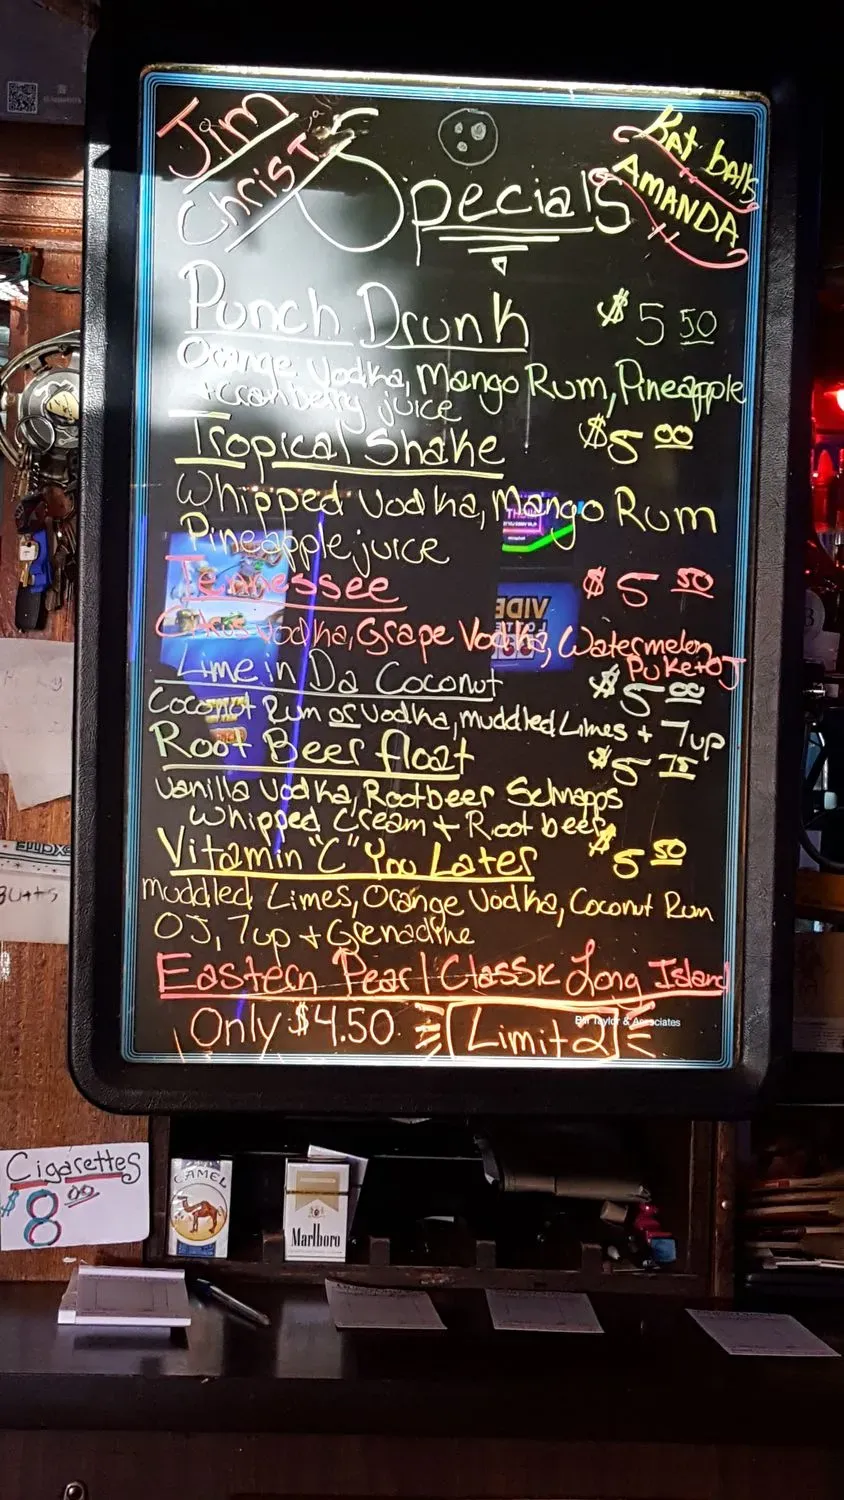 Jim
Christ
Specials
Rat balls
AMANDA
Punch Drunk $5 50
Orange Vodka, Mango Rum, Pineapple
+ cranberry juice
Tropical Shake $5 00
Whipped Vodka, Mango Rum
Pineapple juice
Tennessee $5 50
Citrus Vodka, Grape Vodka, Watermelon
Puke + OJ
Lime in Da Coconut $5 00
Coconut Rum or Vodka, muddled Limes + 7up
Root Beer float $5 75
Vanilla Vodka, Rootbeer Schnapps
Whipped Cream + Root beer
Vitamin "C" You Later $5 50
muddled Limes, Orange Vodka, Coconut Rum
OJ, 7up + Grenadine
Eastern Pearl Classic Long Island
Only $4.50 Limit 2
Bill Taylor & Associates
Cigarettes
$8 00
CAMEL
Marlboro